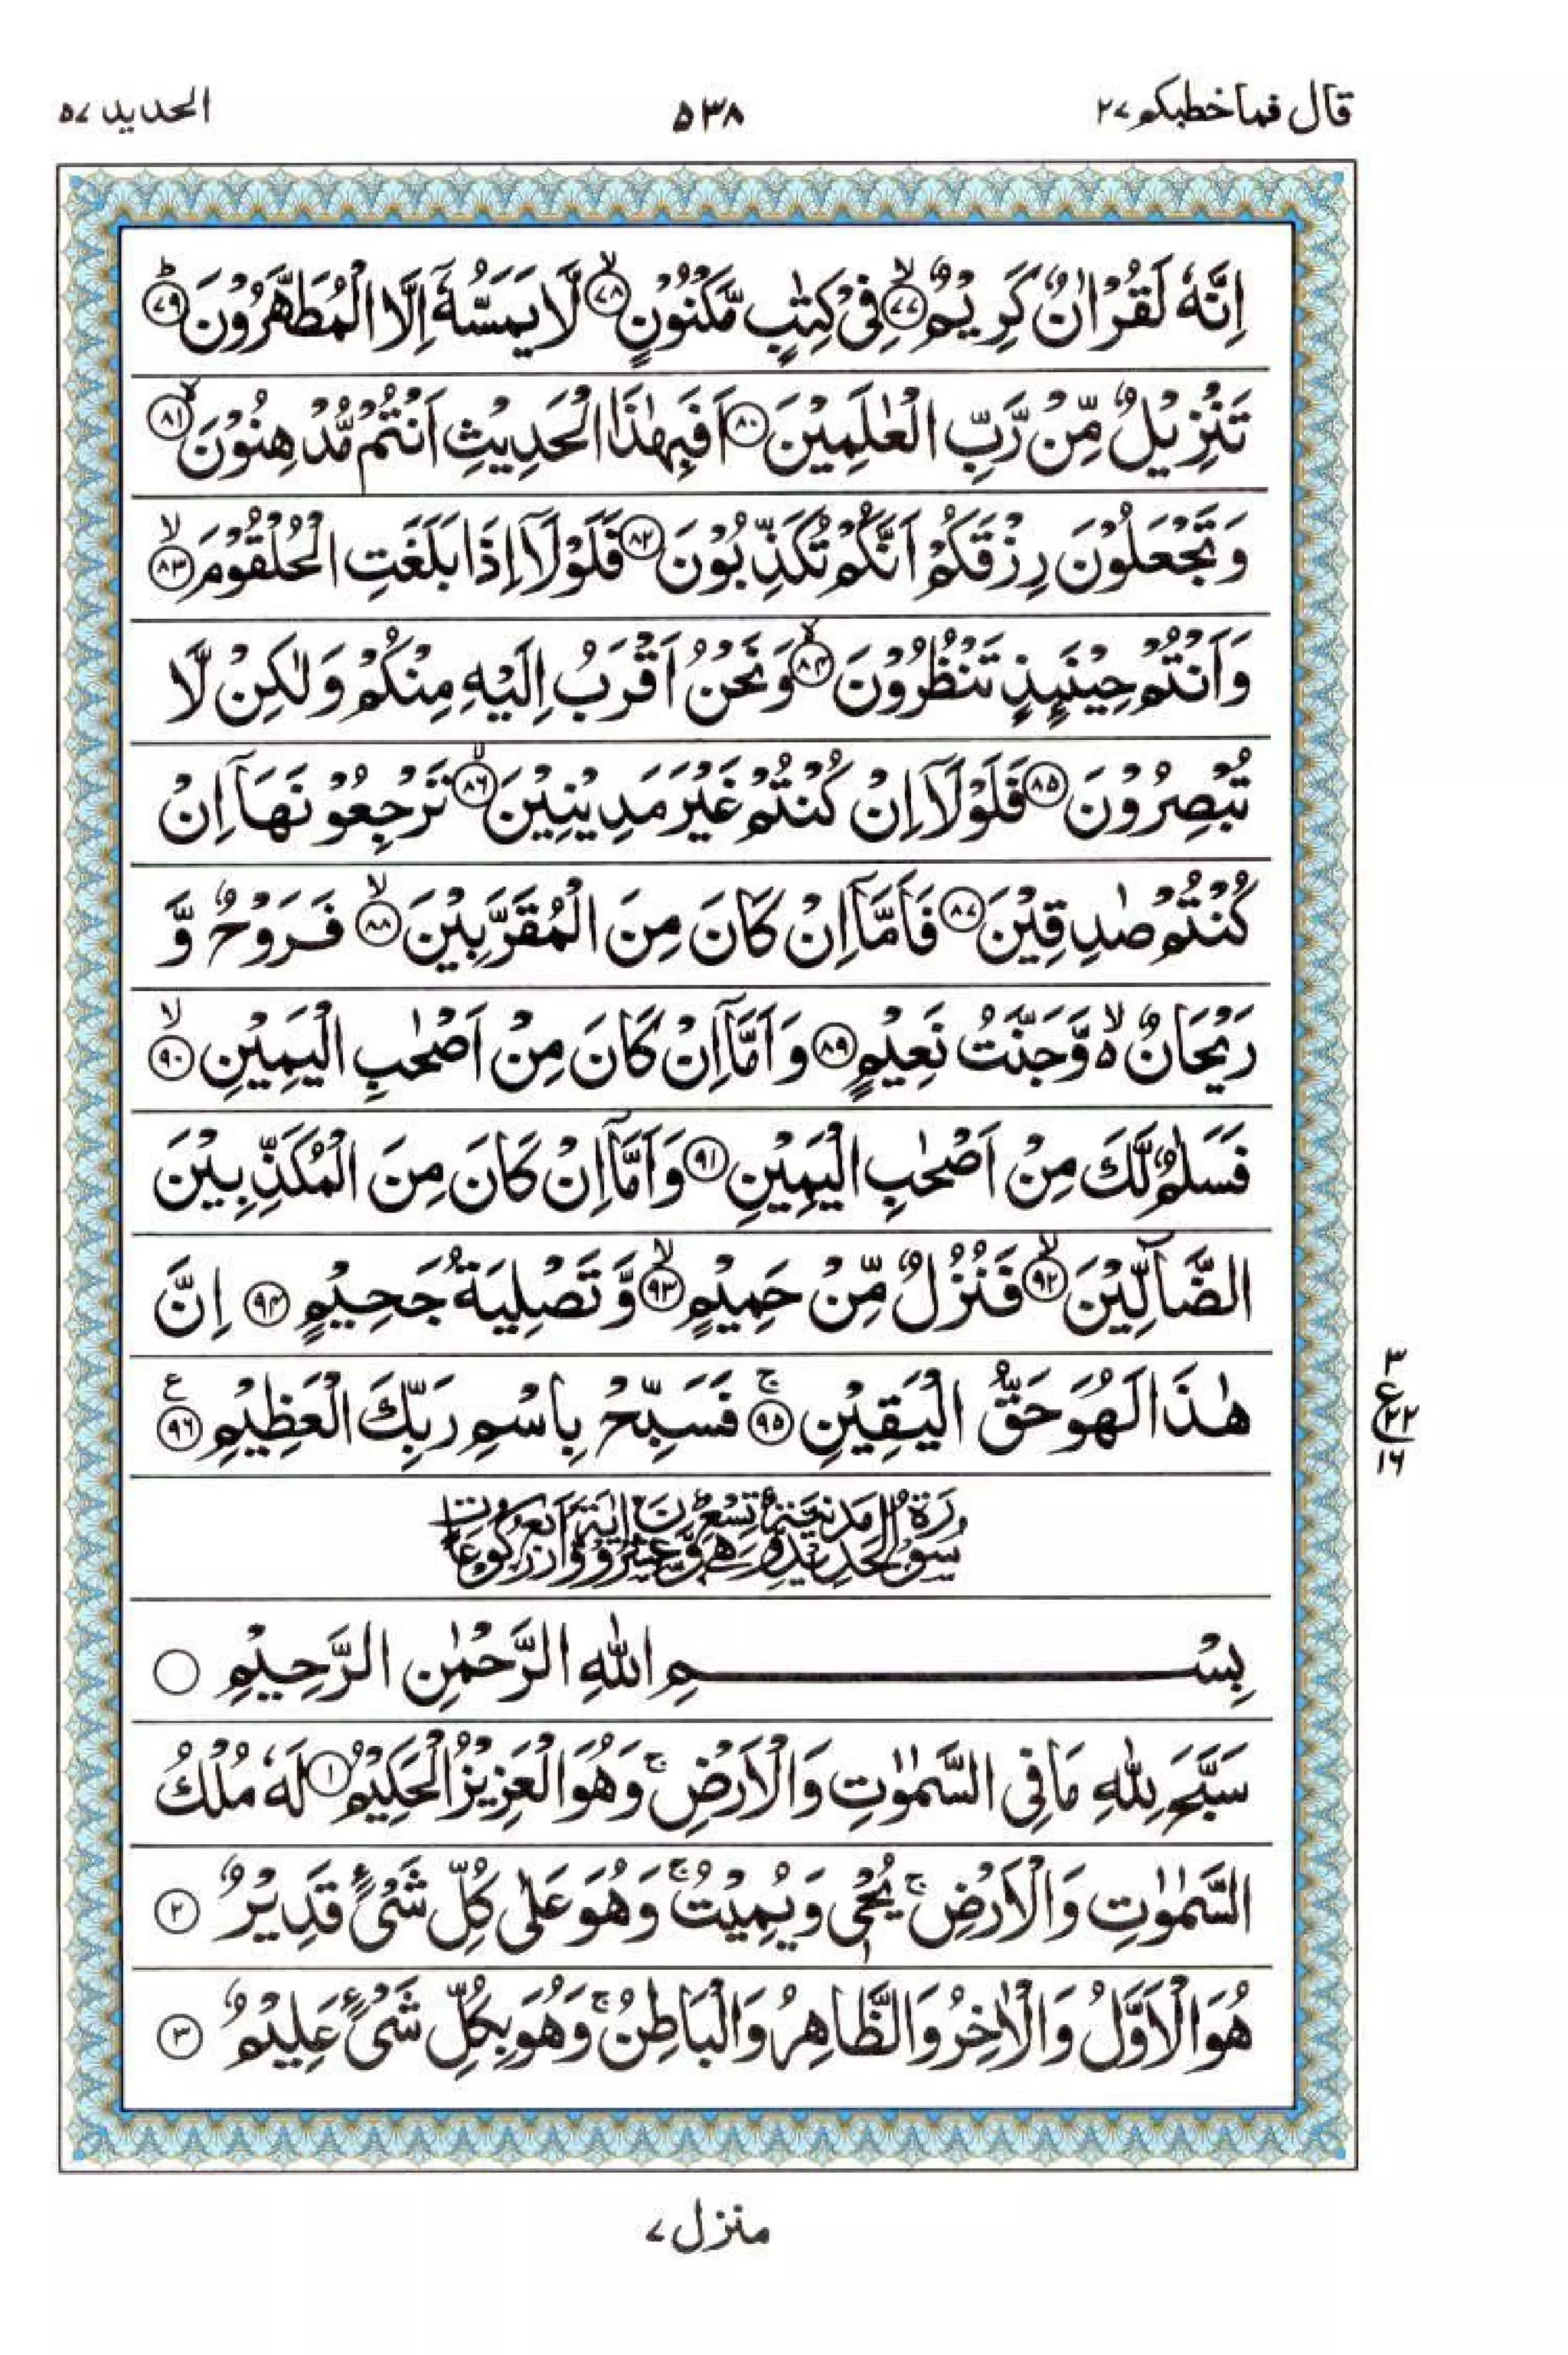 قال فماخطبکم ۲۷
۵۳۸
الحدید ۵۷
اِنَّهٗ لَقُرْاٰنٌ كَرِيْمٌ ۙ﴿۷۷﴾ فِيْ كِتٰبٍ مَّكْنُوْنٍ ۙ﴿۷۸﴾ لَّا يَمَسُّهٗۤ اِلَّا الْمُطَهَّرُوْنَ ؕ﴿۷۹﴾
تَنْزِيْلٌ مِّنْ رَّبِّ الْعٰلَمِيْنَ ﴿۸۰﴾ اَفَبِهٰذَا الْحَدِيْثِ اَنْتُمْ مُّدْهِنُوْنَ ۙ﴿۸۱﴾
وَتَجْعَلُوْنَ رِزْقَكُمْ اَنَّكُمْ تُكَذِّبُوْنَ ﴿۸۲﴾ فَلَوْلَاۤ اِذَا بَلَغَتِ الْحُلْقُوْمَ ۙ﴿۸۳﴾
وَاَنْتُمْ حِيْنَىِٕذٍ تَنْظُرُوْنَ ۙ﴿۸۴﴾ وَنَحْنُ اَقْرَبُ اِلَيْهِ مِنْكُمْ وَلٰكِنْ لَّا
تُبْصِرُوْنَ ﴿۸۵﴾ فَلَوْلَاۤ اِنْ كُنْتُمْ غَيْرَ مَدِيْنِيْنَ ۙ﴿۸۶﴾ تَرْجِعُوْنَهَاۤ اِنْ
كُنْتُمْ صٰدِقِيْنَ ﴿۸۷﴾ فَاَمَّاۤ اِنْ كَانَ مِنَ الْمُقَرَّبِيْنَ ۙ﴿۸۸﴾ فَرَوْحٌ وَّ
رَيْحَانٌ ۙ۬ وَّجَنَّتُ نَعِيْمٍ ﴿۸۹﴾ وَاَمَّاۤ اِنْ كَانَ مِنْ اَصْحٰبِ الْيَمِيْنِ ۙ﴿۹۰﴾
فَسَلٰمٌ لَّكَ مِنْ اَصْحٰبِ الْيَمِيْنِ ﴿۹۱﴾ وَاَمَّاۤ اِنْ كَانَ مِنَ الْمُكَذِّبِيْنَ
الضَّآلِّيْنَ ۙ﴿۹۲﴾ فَنُزُلٌ مِّنْ حَمِيْمٍ ۙ﴿۹۳﴾ وَّتَصْلِيَةُ جَحِيْمٍ ﴿۹۴﴾ اِنَّ
هٰذَا لَهُوَ حَقُّ الْيَقِيْنِ ۚ﴿۹۵﴾ فَسَبِّحْ بِاسْمِ رَبِّكَ الْعَظِيْمِ ﴿۹۶﴾ ع
۳
ع ۲۲
۱۶
سُوْرَةُ الْحَدِيْدِ مَدَنِيَّةٌ وَّهِيَ تِسْعٌ وَّعِشْرُوْنَ اٰيَةً وَّاَرْبَعُ رُكُوْعَاتٍ
بِسْمِ اللّٰهِ الرَّحْمٰنِ الرَّحِيْمِ ○
سَبَّحَ لِلّٰهِ مَا فِي السَّمٰوٰتِ وَالْاَرْضِ ۚ وَهُوَ الْعَزِيْزُ الْحَكِيْمُ ﴿۱﴾ لَهٗ مُلْكُ
السَّمٰوٰتِ وَالْاَرْضِ ۚ يُحْيٖ وَيُمِيْتُ ۚ وَهُوَ عَلٰى كُلِّ شَيْءٍ قَدِيْرٌ ﴿۲﴾
هُوَ الْاَوَّلُ وَالْاٰخِرُ وَالظَّاهِرُ وَالْبَاطِنُ ۚ وَهُوَ بِكُلِّ شَيْءٍ عَلِيْمٌ ﴿۳﴾
منزل ۷